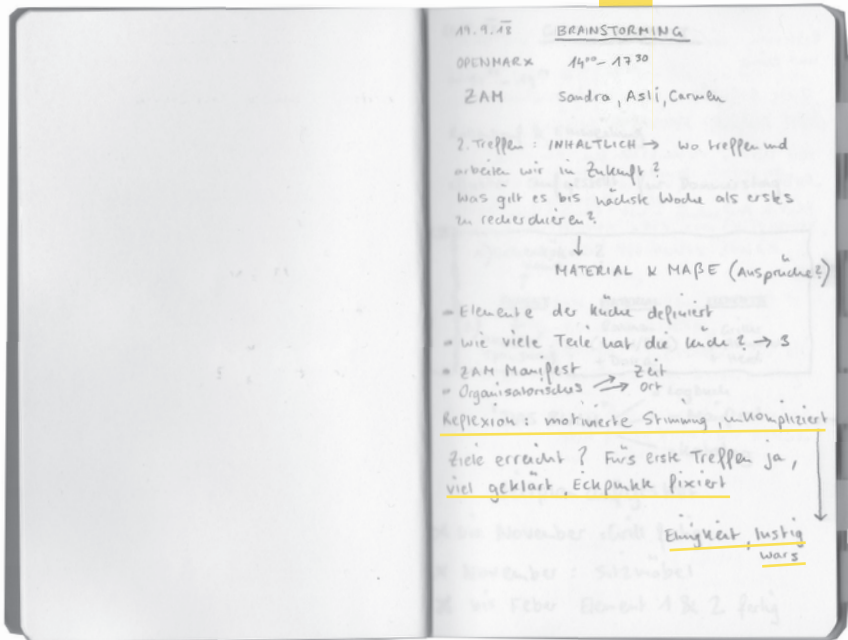 19.9.18 BRAINSTORMING
OPENMARX 14⁰⁰ - 17³⁰
ZAM Sandra, Asli, Carmen
2. Treffen : INHALTLICH → wo treffen und
arbeiten wir in Zukunft?
Was gilt es bis nächste Woche als erstes
zu recherchieren?
↓
MATERIAL & MAßE (Ansprüche?)
- Elemente der Küche definiert
- Wie viele Teile hat die Küche? → 3
- ZAM Manifest Zeit
- Organisatorisches →→ Ort
Reflexion : motivierte Stimmung, unkompliziert
Ziele erreicht? Fürs erste Treffen ja,
viel geklärt, Eckpunkte fixiert
Einigkeit, lustig
wars
bis November
November : Sitzmöbel
bis Feber Element 1 & 2 fertig